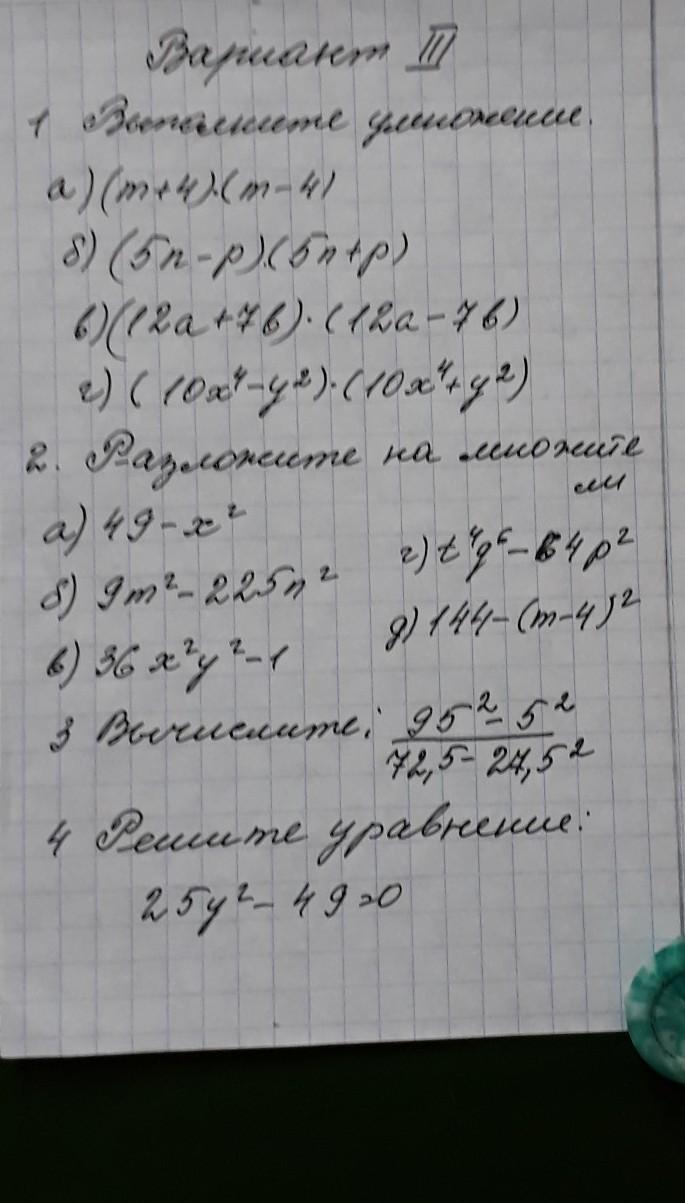 Вариант III
1 Выполните умножение.
а) (m+4)·(m-4)
б) (5n-p)·(5n+p)
в) (12a+7b)·(12a-7b)
г) (10x⁴-y²)·(10x⁴+y²)
2. Разложите на множите
ли
а) 49-x²
б) 9m²-225n²
в) 36x²y²-1
г) t⁴q⁶-64p²
д) 144-(m-4)²
3 Вычислите: 95²-5²
72,5-27,5²
4 Решите уравнение:
25y²-49=0